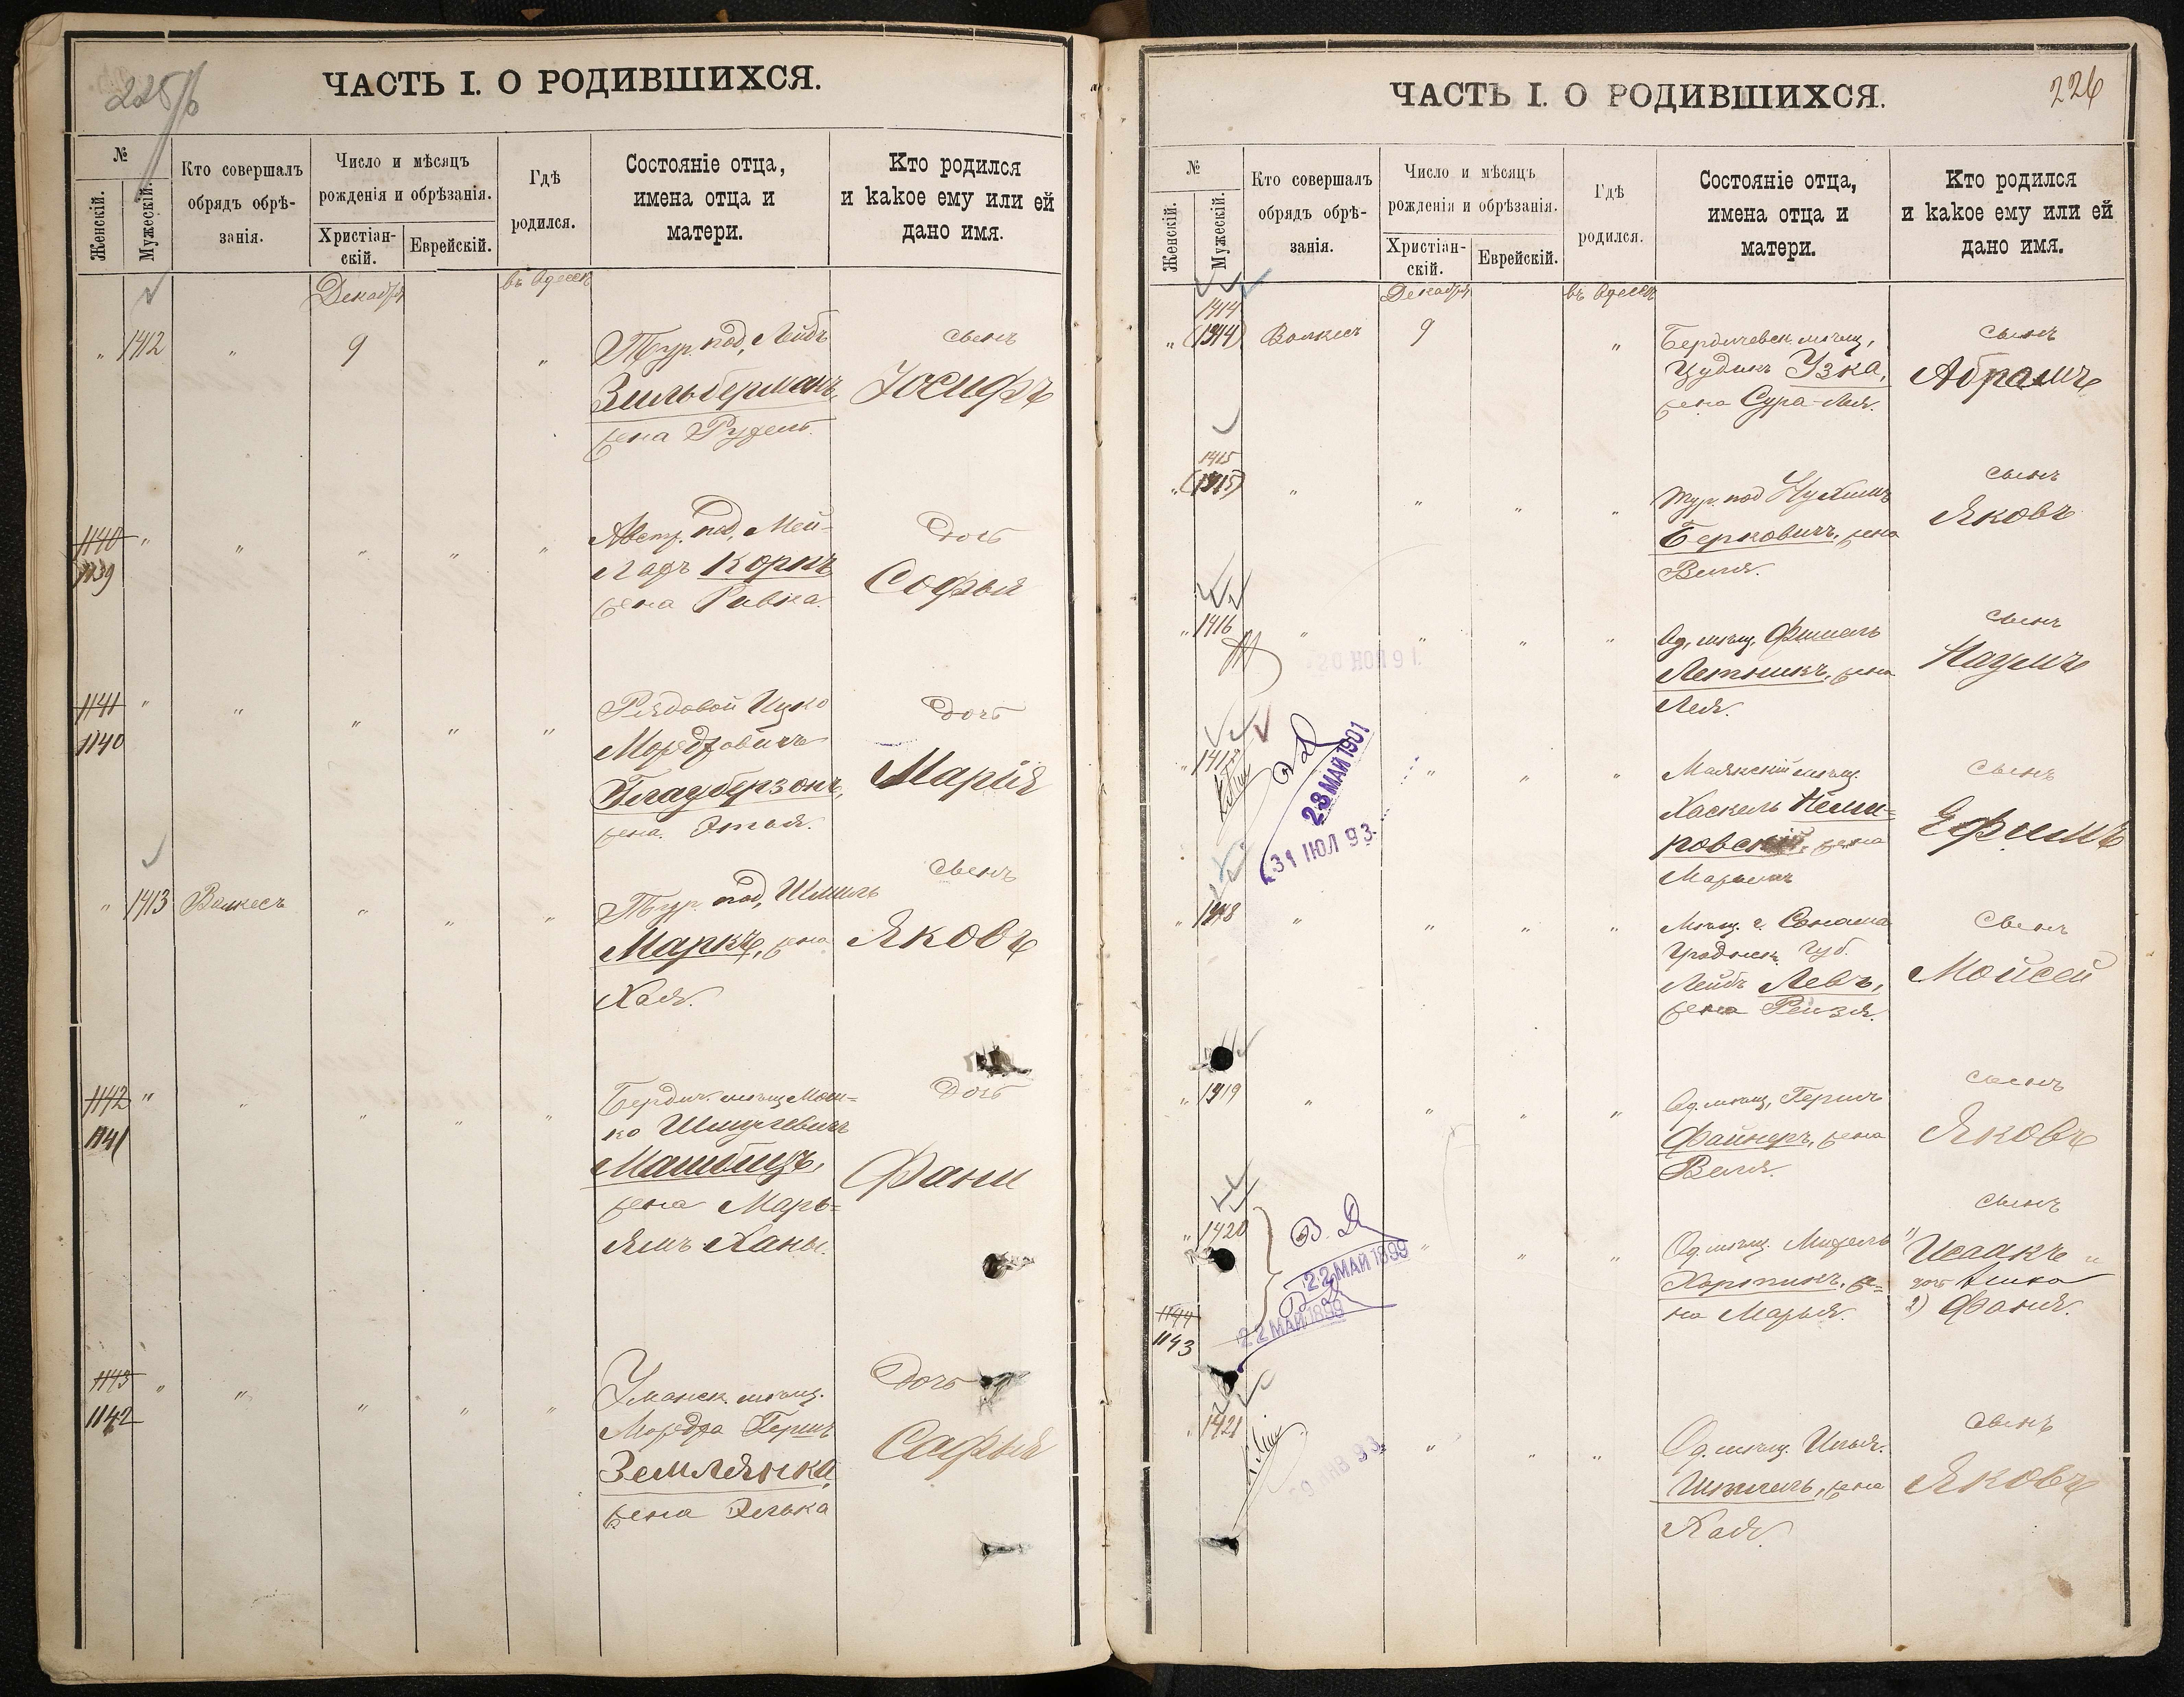 225/б
ЧАСТЬ I. О РОДИВШИХСЯ.
№
Женскій.
Мужескій.
Кто совершалъ
обрядъ обрѣ-
занія.
Число и мѣсяцъ
рожденія и обрѣзанія.
Христіан-
скій.
Еврейскій.
Гдѣ
родился.
Состояніе отца,
имена отца и
матери.
Кто родился
и какое ему или ей
дано имя.
Декабря
въ Одессѣ
" 1412 " 9 " Тур. под. Лейбъ сынъ
Зильберманъ, Іосифъ
жена Рудель.
1140 " " " " " Австр. под. Мей- Дочь
1139 ладъ Корнъ Софья
жена Ривка.
1141 " " " " " Рядовой Ицко Дочь
1140 Мордковичъ
Глауберзонъ, Марія
жена Этья.
" 1413 Волкесъ " " " Тур. под. Шмиль сынъ
Маркъ, жена Яковъ
Хая.
1142 " " " " " Бердич. мѣщ. Мош= Дочь
1141 ко Шмулевичъ
Машбицъ, Фани
жена Марь=
ямъ Ханы.
1143 " " " " " Уманск. мѣщ. Дочь
1142 Мордха Гершъ
Землянка, Софья
жена Элька
226
ЧАСТЬ I. О РОДИВШИХСЯ.
№
Женскій.
Мужескій.
Кто совершалъ
обрядъ обрѣ-
занія.
Число и мѣсяцъ
рожденія и обрѣзанія.
Христіан-
скій.
Еврейскій.
Гдѣ
родился.
Состояніе отца,
имена отца и
матери.
Кто родился
и какое ему или ей
дано имя.
Декабря
въ Одессѣ
1414
" (1914) Волкесъ 9 " Бердичевск. мѣщ. сынъ
Іудинъ Узка, Абрамъ
жена Сура-Лея.
1415
" (1915) " " " Тур. под. Нухимъ сынъ
Берковичъ, жена Яковъ
Веля.
" 1416 " " " " Од. мѣщ. Фишель сынъ
20 НОЯ 91.
Летникъ, жена Наумъ
Лея.
" 1417 " " " Маякскій мѣщ. сынъ
28 МАЙ 1901
31 ІЮЛ 93.
Хаскель Неми=
ровскій, жена Ефимъ
Марьямъ
" 1418 " " " " Мѣщ. г. сынъ
Гродненск. Губ.
Лейбъ Левъ, Мойсей
жена Рейзя.
" 1419 " " " " Од. мѣщ. Гершъ сынъ
Файнеръ, жена Яковъ
Веля.
сынъ
" 1420 " " " Од. мѣщ. 1) Исаакъ и
В. Д.
22 МАЙ 1899
22 МАЙ 1899
жe=
дочь
1144 на Марья. 2) Фаня.
1143
" 1421 " " " Од. мѣщ. Илья. сынъ
жена Яковъ
Хая.